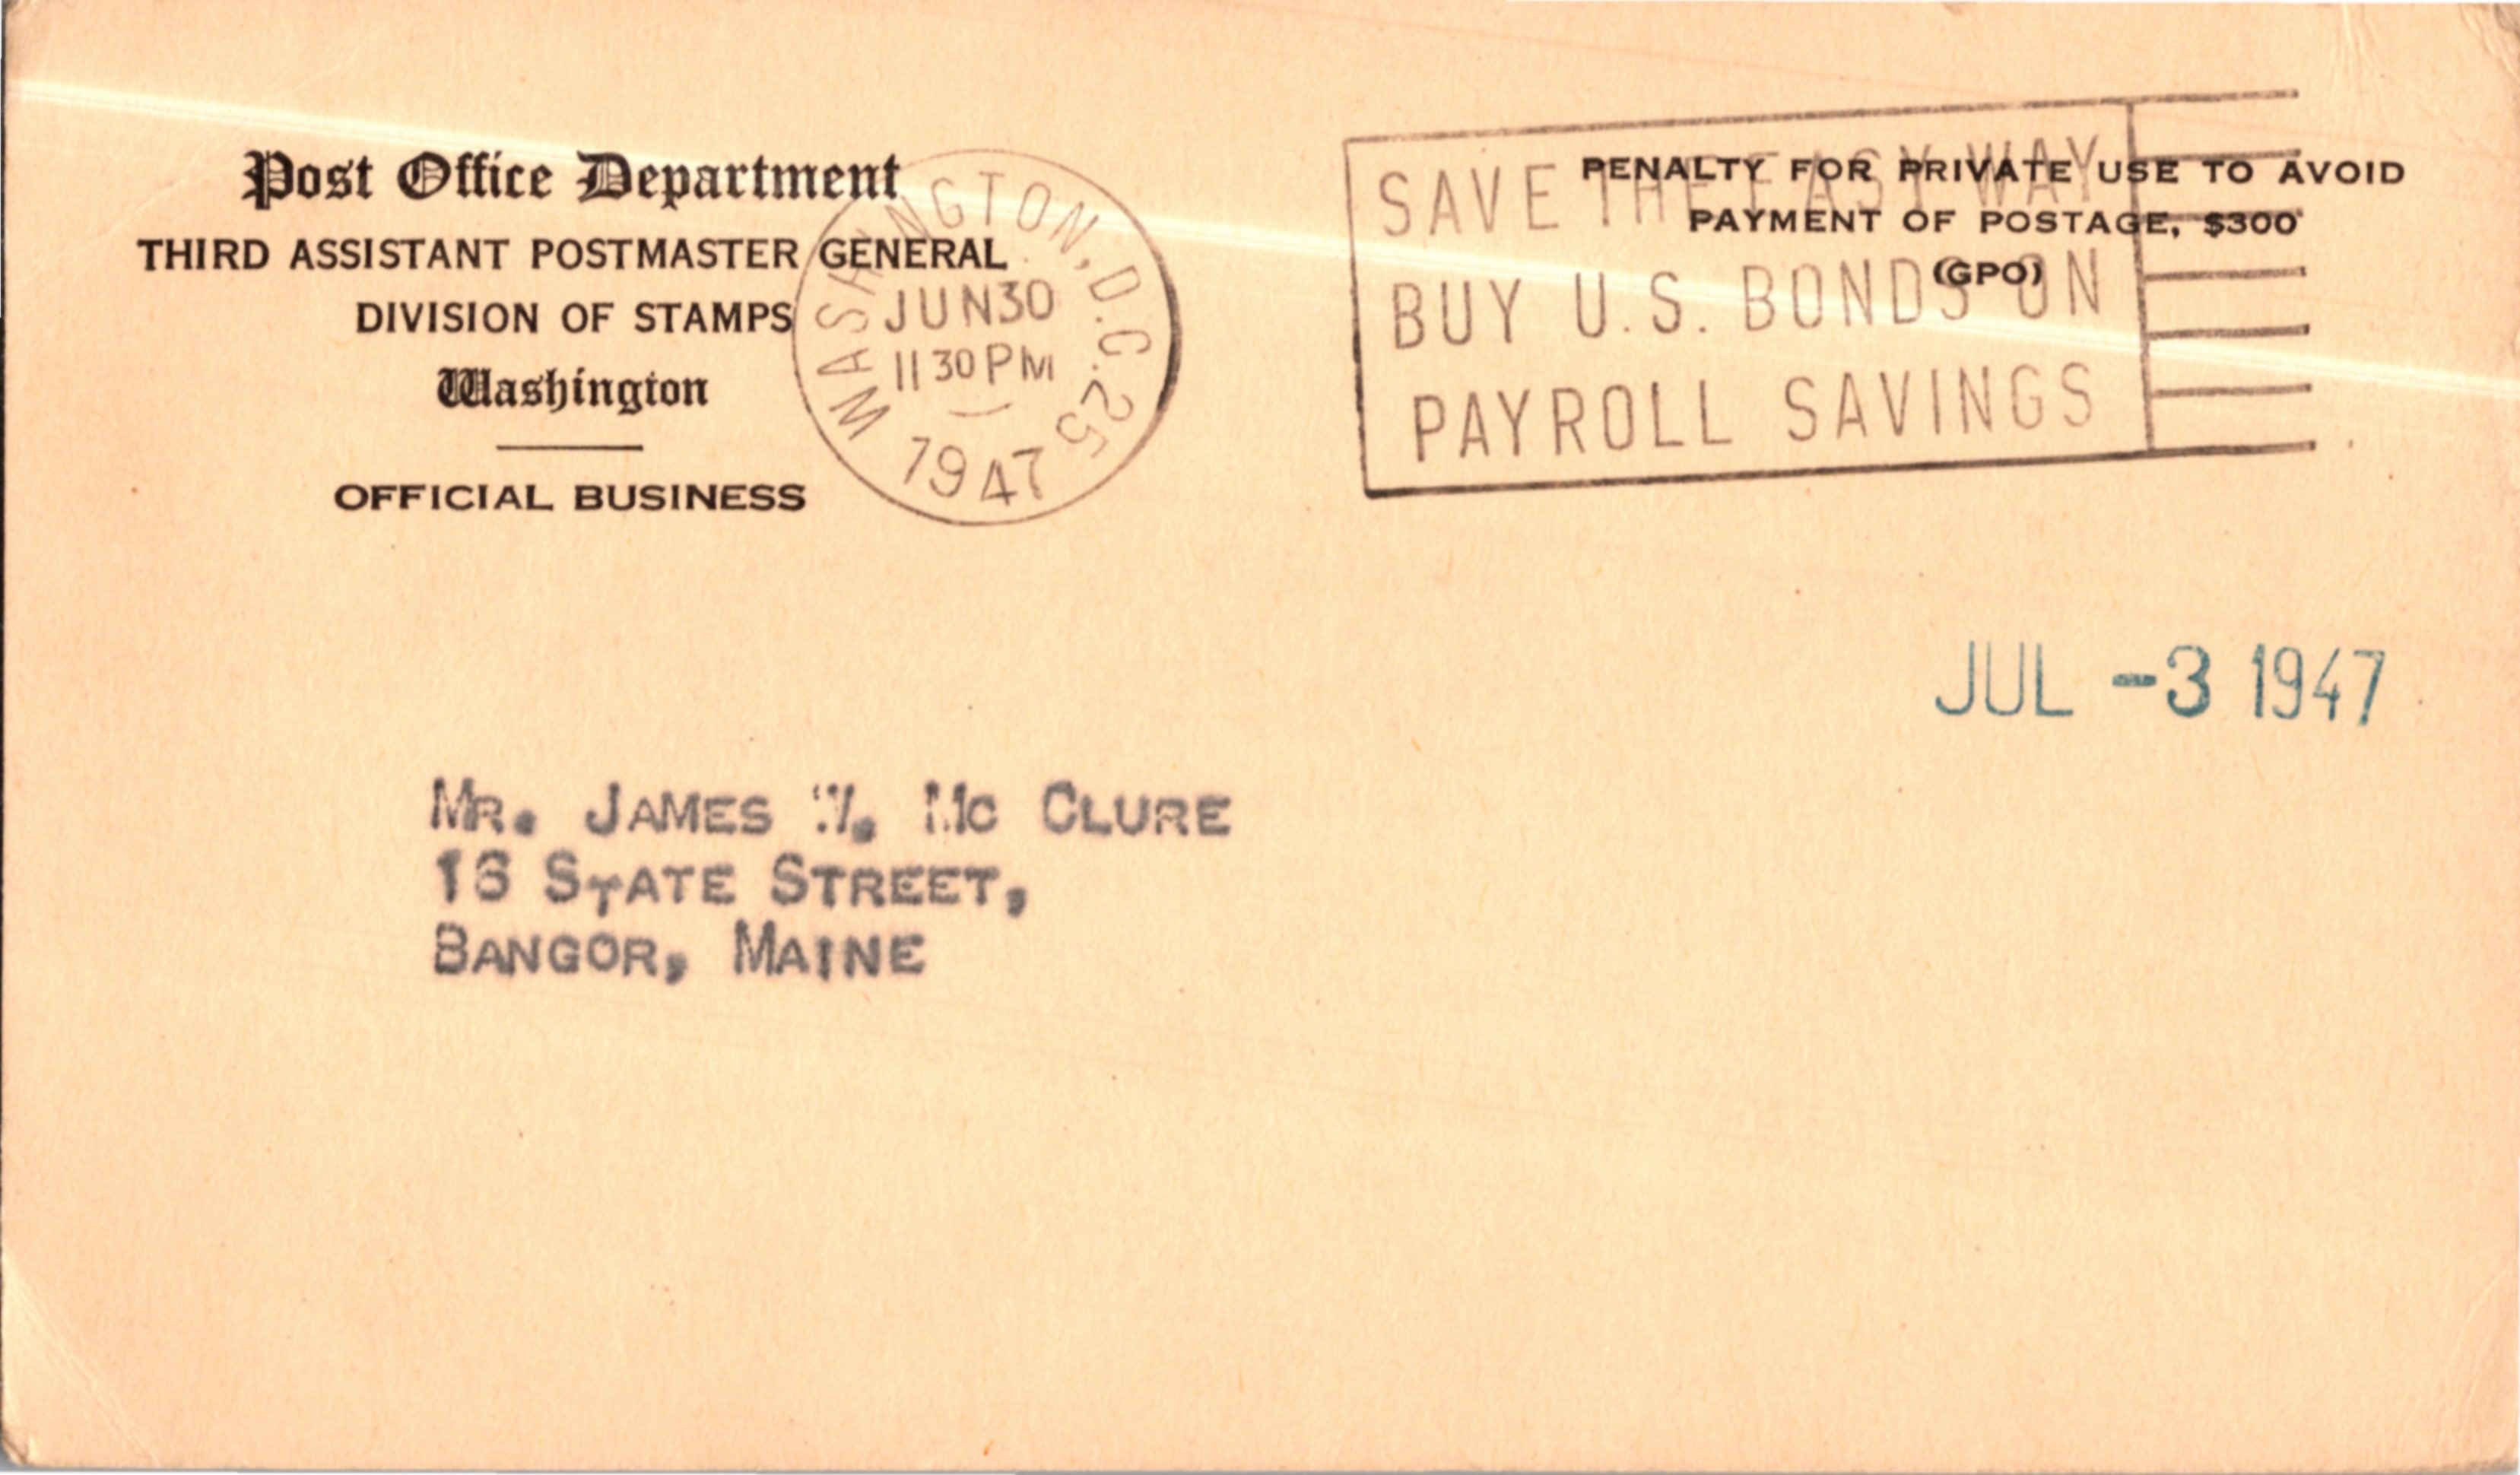 Post Office Department
THIRD ASSISTANT POSTMASTER GENERAL
DIVISION OF STAMPS
Washington
OFFICIAL BUSINESS
WASHINGTON, D.C. 25
JUN 30
11 30 PM
1947
SAVE THE EASY WAY
BUY U.S. BONDS ON
PAYROLL SAVINGS
PENALTY FOR PRIVATE USE TO AVOID
PAYMENT OF POSTAGE, $300
(GPO)
JUL -3 1947
MR. JAMES W. MC CLURE
16 STATE STREET,
BANGOR, MAINE